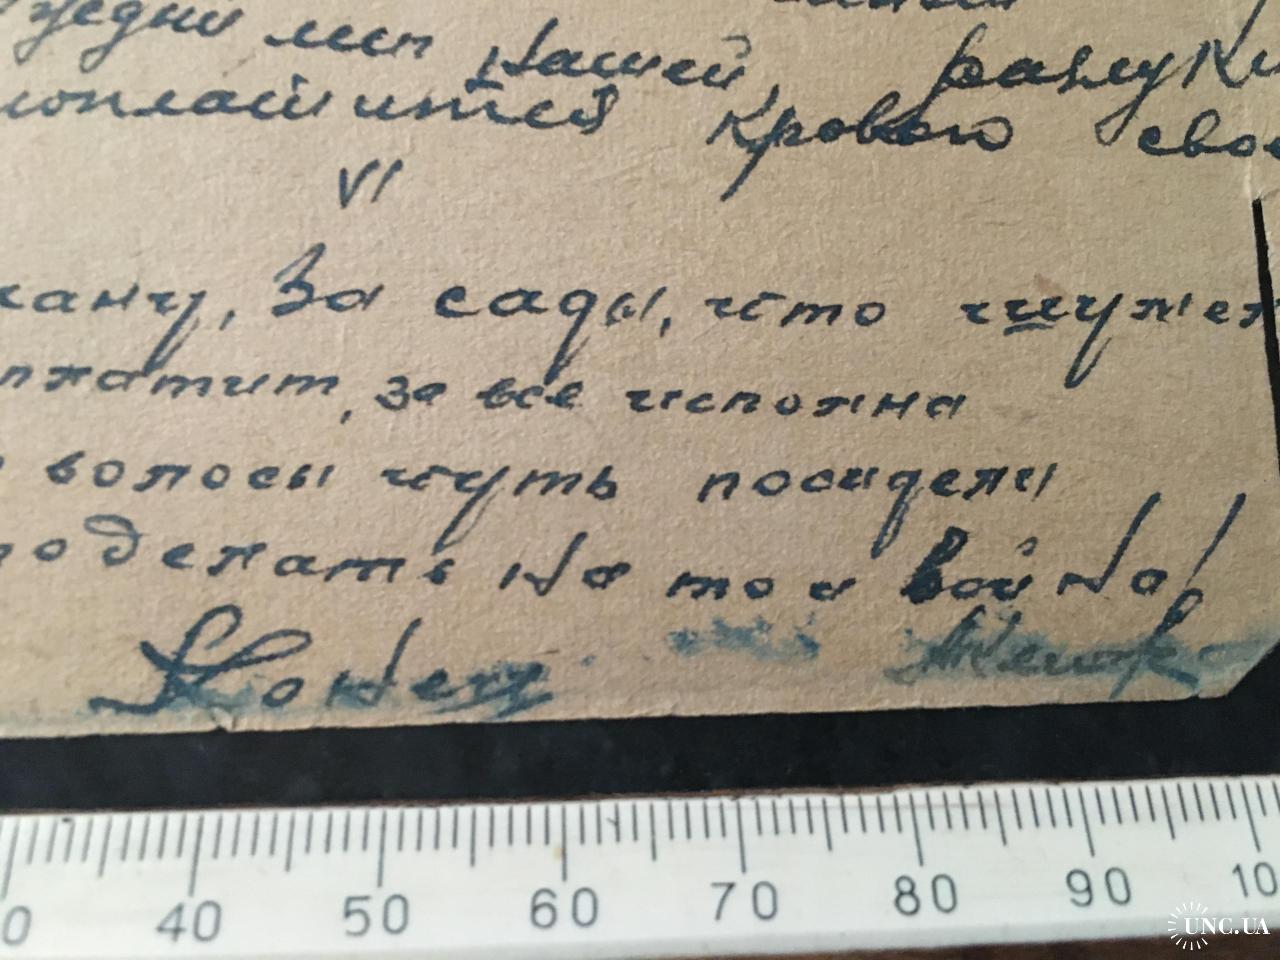 миг нашей, разлуки
поплатится кровою свое
VI
кану, За сады, что чужен
платит, за все исполна
волосы чуть посидели
поделать На то и война!
Конец
0 40 50 60 70 80 90 10
UNC.UA